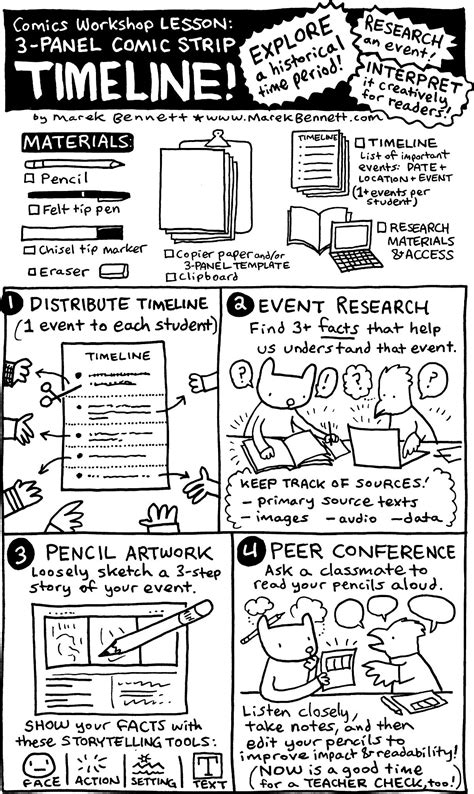 Comics Workshop LESSON:
3-PANEL COMIC STRIP
TIMELINE!
EXPLORE
a historical
time period!
RESEARCH
an event!
INTERPRET
it creatively
for readers!
by Marek Bennett ★ www.MarekBennett.com
MATERIALS:
Pencil
Felt tip pen
Chisel tip marker
Eraser
Copier paper and/or
3-PANEL TEMPLATE
Clipboard
TIMELINE
TIMELINE
List of important
events: DATE +
LOCATION + EVENT
(1+ events per
student)
RESEARCH
MATERIALS
& ACCESS
1 DISTRIBUTE TIMELINE
(1 event to each student)
TIMELINE
2 EVENT RESEARCH
Find 3+ facts that help
us understand that event.
? ! ? ?
KEEP TRACK OF SOURCES!
- primary source texts
- images - audio - data
3 PENCIL ARTWORK
Loosely sketch a 3-step
story of your event.
SHOW your FACTS with
these STORYTELLING TOOLS:
FACE ACTION SETTING T TEXT
4 PEER CONFERENCE
Ask a classmate to
read your pencils aloud.
Listen closely,
take notes, and then
edit your pencils to
improve impact & readability!
(NOW is a good time
for a TEACHER CHECK, too!)